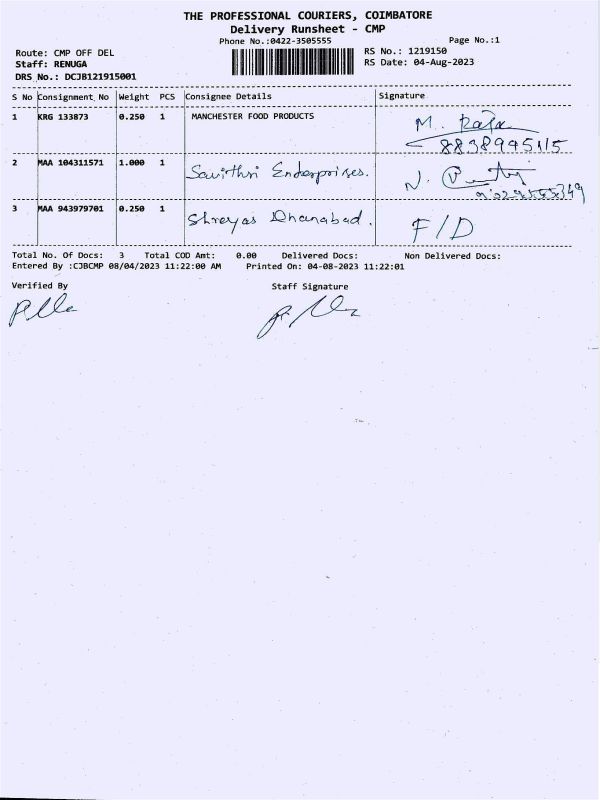 THE PROFESSIONAL COURIERS, COIMBATORE
Delivery Runsheet - CMP
Phone No.:0422-3505555 Page No.:1
Route: CMP OFF DEL RS No.: 1219150
Staff: RENUGA RS Date: 04-Aug-2023
DRS No.: DCJB121915001
S No Consignment No Weight PCS Consignee Details Signature
1 KRG 133873 0.250 1 MANCHESTER FOOD PRODUCTS M. Raja
8838995115
2 MAA 104311571 1.000 1 Savithri Enderprises. N.
3 MAA 943979701 0.250 1 Shreyas Dhanabad. F/D
Total No. Of Docs: 3 Total COD Amt: 0.00 Delivered Docs: Non Delivered Docs:
Entered By :CJBCMP 08/04/2023 11:22:00 AM Printed On: 04-08-2023 11:22:01
Verified By Staff Signature